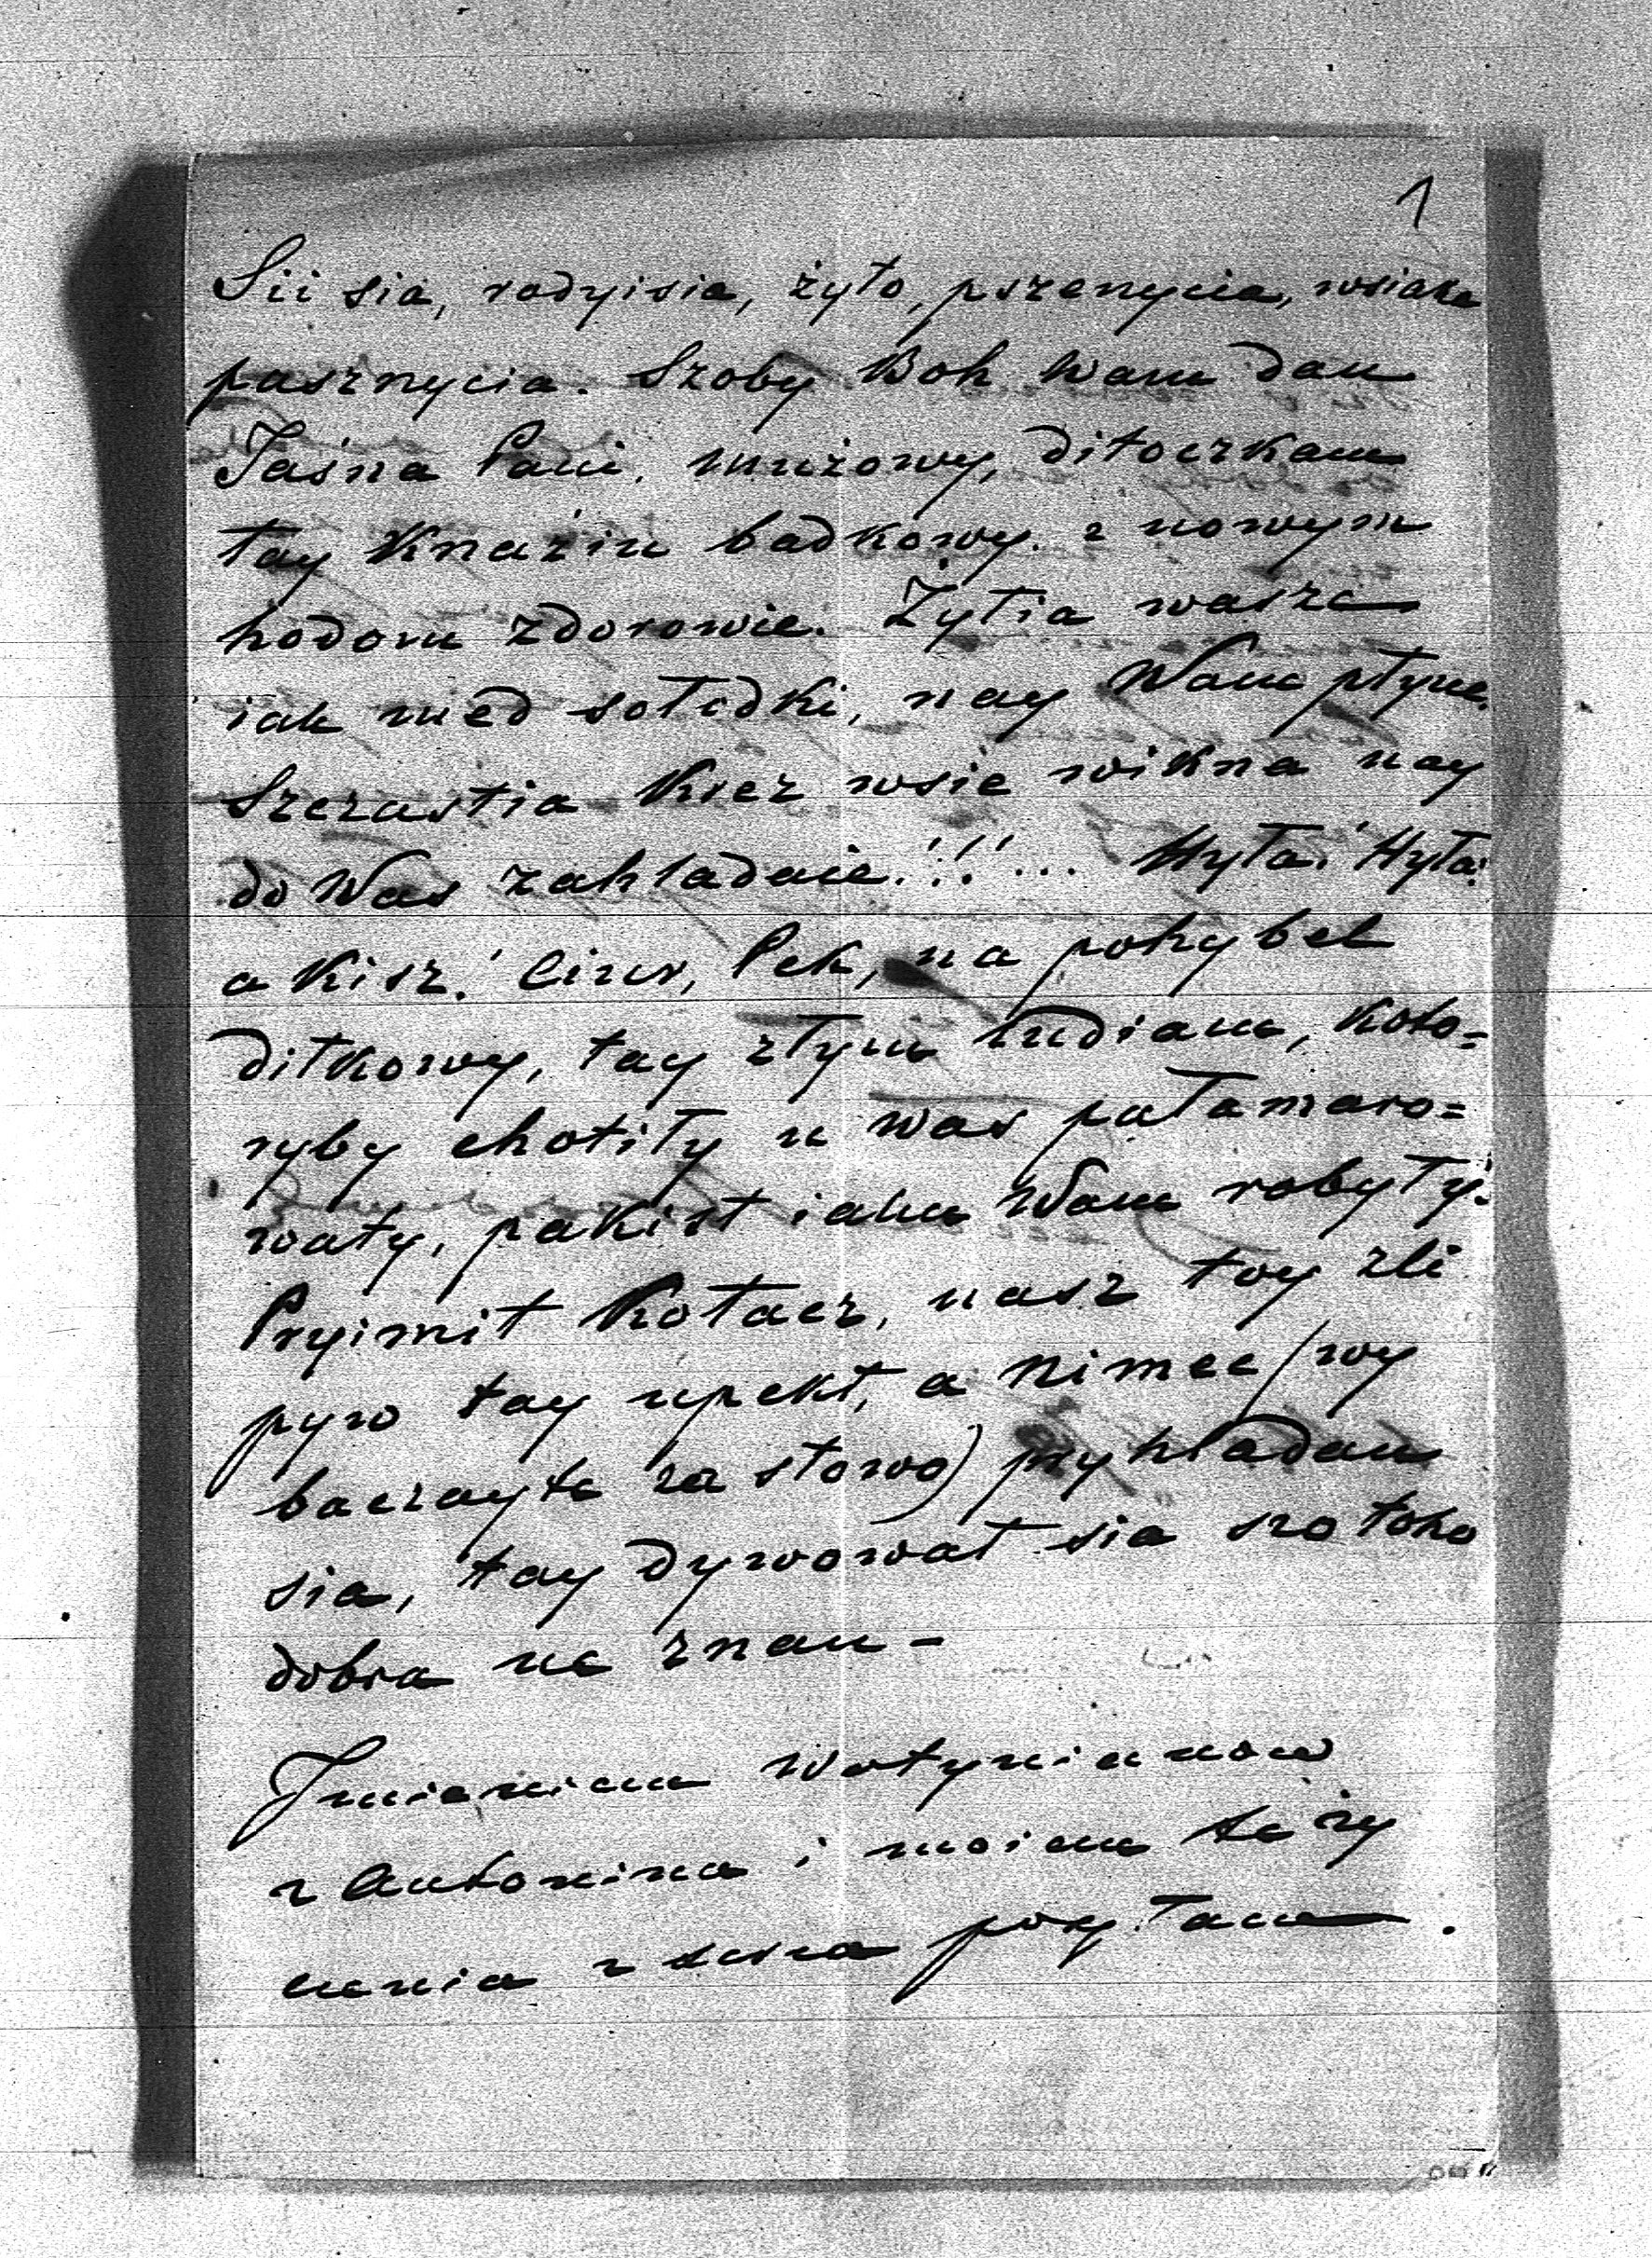 1
Sii sia, rodyisia, żyto, pszenycia, wsiaka
pasznycia. Szoby Boh Wam dau
Jaśna Pani, mużowy, ditoczkam
tay Kniaziu badkowy. z nowym
hodom zdorowie. Żytia wasze
iak med sołodki, nay Wam płyne.
Szczastia krez wsie wikna nay
do Was zahladaie!!!... Hyła! Hyła!
a Kisz! Cius, Pek, na pohybel
ditkowy, tay złym ludiam, koto=
ryby chotiły u was pałamaro=
waty, pakist iaku Wam robyty.
Pryimit Kołacz, nasz toy zli
pyw tay upekt, a nimec (wy
baczayte za słowo) pryhladau
sia, tay dywowat sia szo toho
dobra ne znau -
Imieniem Wołynianow
z Antonina i moim te ży
czenia z serca posyłam.